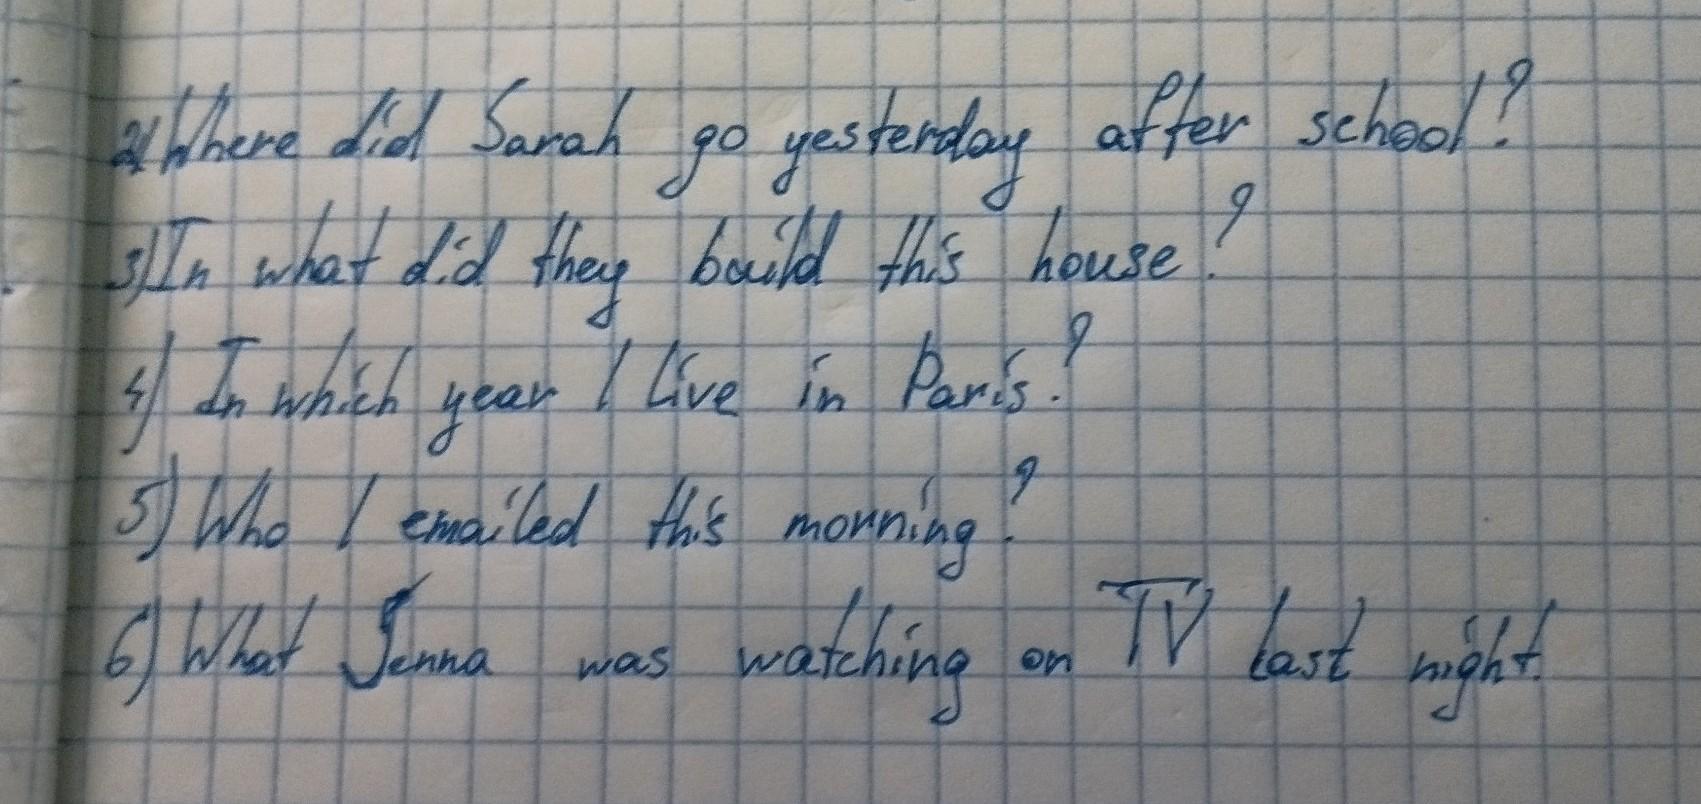 2) Where did Sarah go yesterday after school?
3) In what did they build this house?
4) In which year I live in Paris?
5) Who I emailed this morning?
6) What Jenna was watching on TV last night.